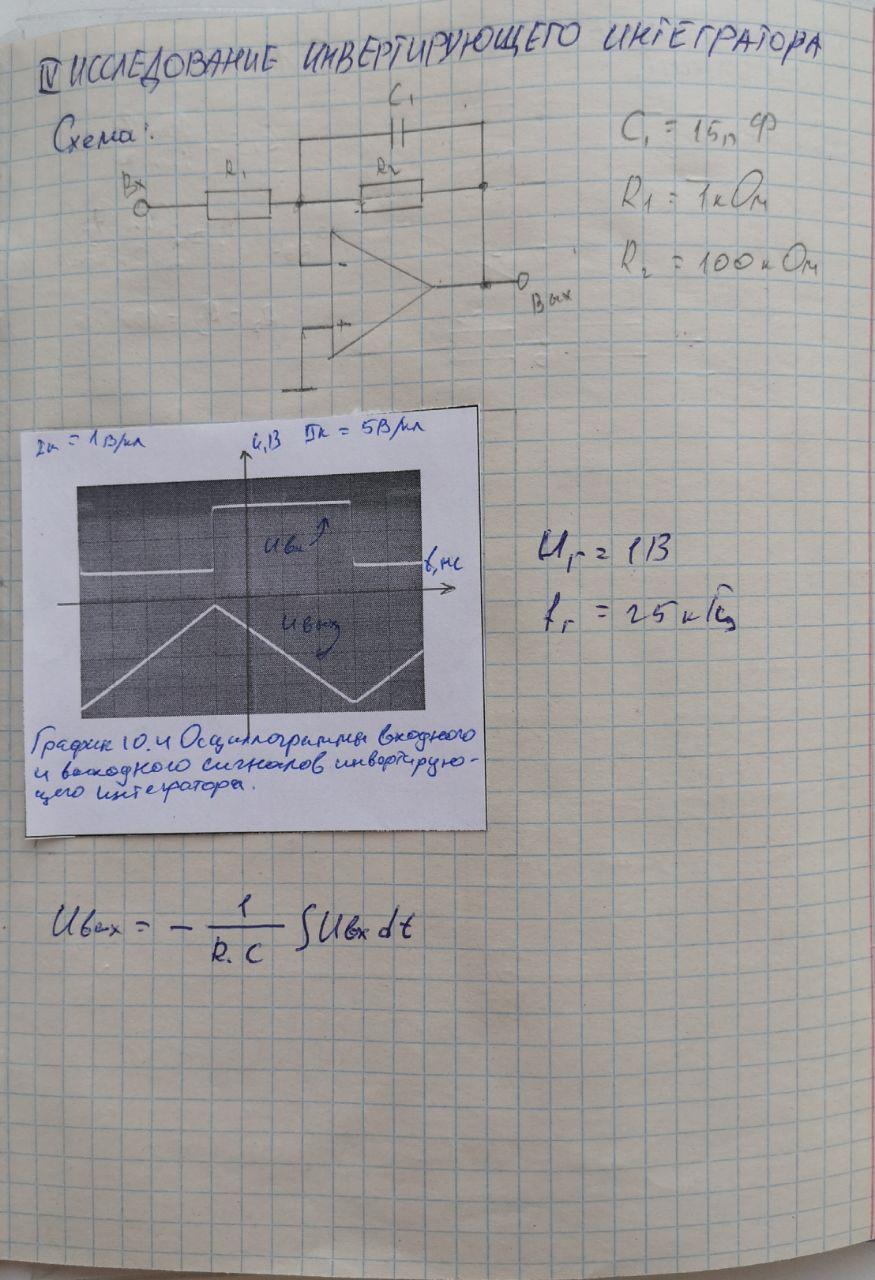 IV ИССЛЕДОВАНИЕ ИНВЕРТИРУЮЩЕГО ИНТЕГРАТОРА
Схема:
C₁
R₁
R₂
Вх
-
+
Вых
C₁ = 15пФ
R1 = 1кОм
R₂ = 100кОм
Iк = 1В/кл
U,В
IIк = 5В/кл
Uвх
t,нс
Uвых
График 10.4 Осциллограммы входного
и выходного сигналов инвертирую-
щего интегратора.
Uг = 1В
fг = 25кГц
Uвых = - 1/R·C ∫Uвх dt